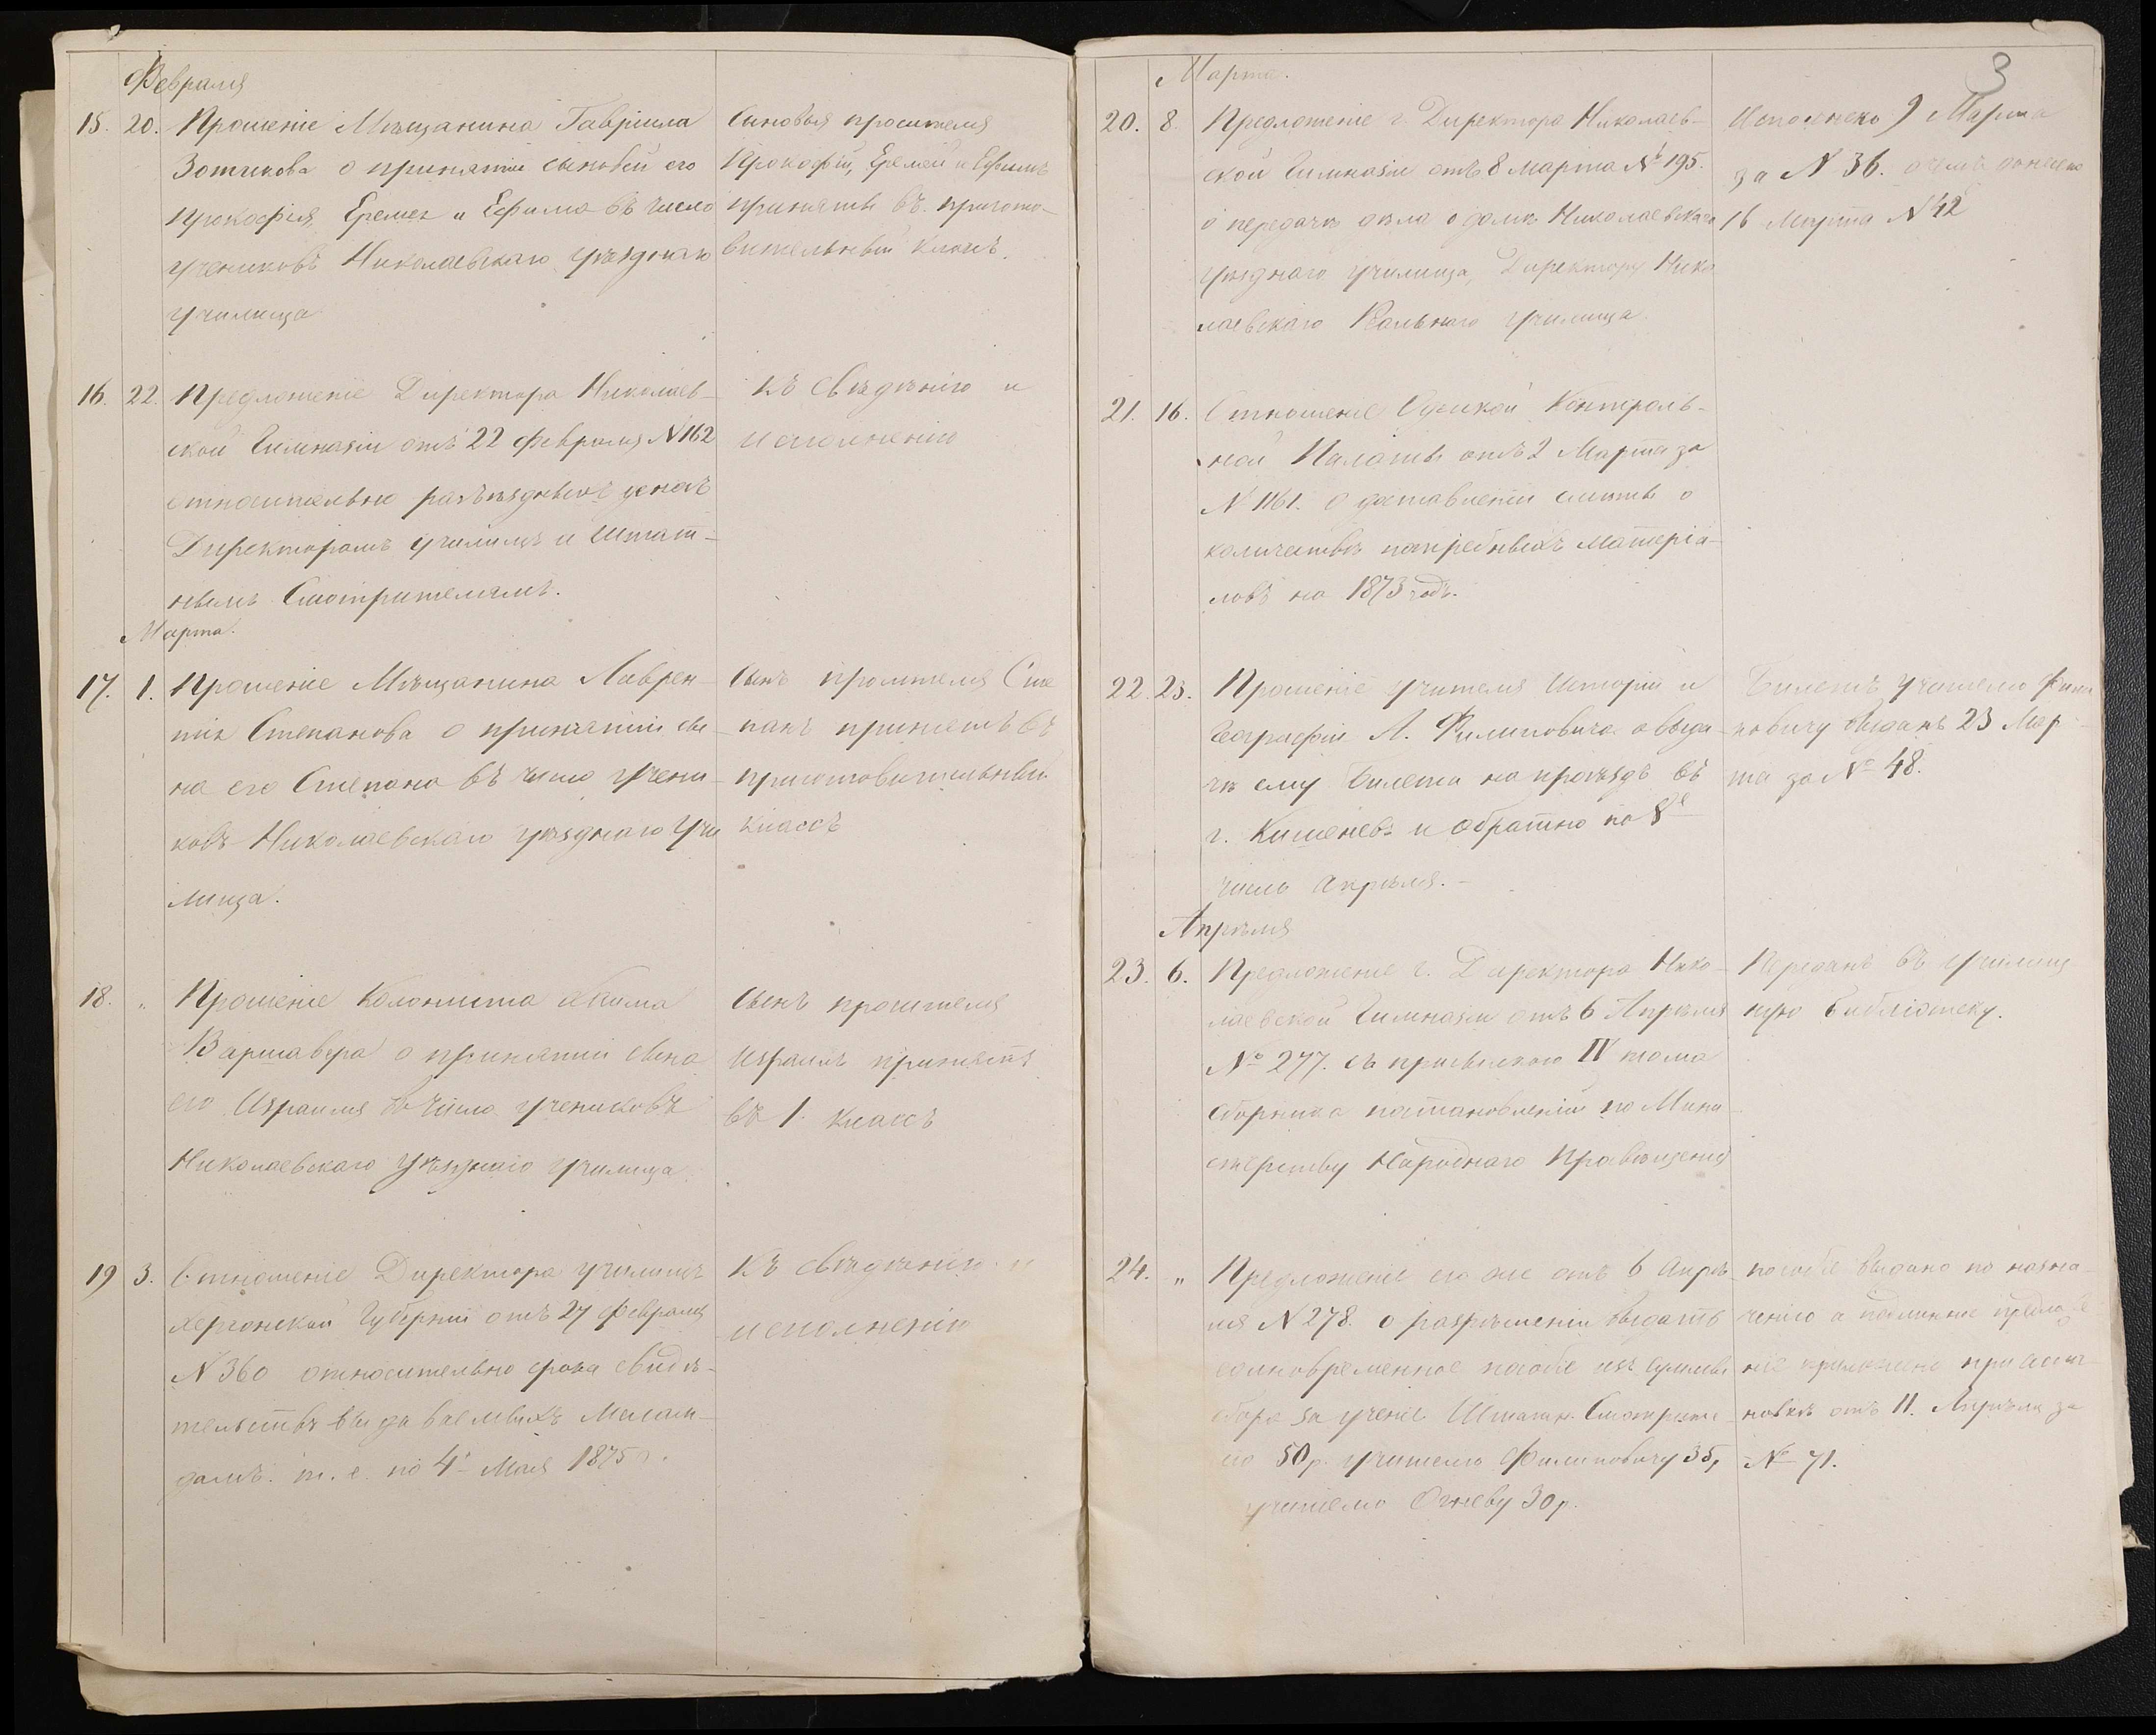 Февраля
15. 20. Прошеніе Мѣщанина Гавріила
Зотикова о принятіи сыновей его
Прокофія, Еремея и Ефима въ число
учениковъ Николаевскаго уѣзднаго
училища
Сыновья просителя
Прокофій, Еремей и Ефимъ
приняты въ пригото-
вительный классъ.
16. 22. Предложеніе Директора Николаев-
ской Гимназіи отъ 22 Февраля № 162
относительно разъѣздныхъ денегъ
Директорамъ училищъ и Штат-
нымъ Смотрителямъ.
Къ свѣдѣнію и
исполненію
Марта.
17. 1. Прошеніе Мѣщанина Лаврен-
тія Степанова о принятіи сы-
на его Степана въ число учени-
ковъ Николаевскаго уѣзднаго Учи
лища.
Сынъ просителя Сте
панъ принятъ въ
приготовительный
классъ
18. " Прошеніе Колониста
Варшавера о принятіи сына
его Израиля въ число учениковъ
Николаевскаго Уѣзднаго училища.
Сынъ просителя
Израиль принятъ
въ 1. классъ
19 3. Отношеніе Директора училищъ
Херсонской Губерніи отъ 27 Февраля
№ 360 относительно срока свидѣ-
тельствъ выдаваемыхъ
т. е. по 4е Мая 1875 г.
Къ свѣдѣнію и
исполненію
3
Марта.
20. 8. Предложеніе г. Директора Николаев-
ской Гимназіи отъ 8 марта № 195.
о передачѣ дѣла о домѣ Николаевскаго
уѣзднаго училища, Директору Нико
лаевскаго Реальнаго училища.
Исполнено 9 Марта
за № 36. о чемъ донесено
16 Марта № 42
21. 16. Отношеніе Одесской Контроль-
ной Палаты отъ 2 Марта за
№ 1161. О доставленіи смѣты о
количествѣ потребныхъ матеріа-
ловъ на 1873 годъ.
22. 23. Прошеніе учителя Исторіи и
Географіи Л. Филиповича о выда-
чѣ ему билета на проѣздъ въ
г. Кишеневъ и обратно по 8е
число Апрѣля.-
Билетъ учителю Фили
повичу выданъ 23 Мар-
та за № 48.
Апрѣля
23. 6. Предложеніе г. Директора Нико-
лаевской Гимназіи отъ 6 Апрѣля
№ 277. съ присылкою IV тома
сборника постановленій по Мини-
стерству Народнаго Просвѣщенія
Переданъ въ училищ
ную библіотеку.
24. " Предложеніе его же отъ 6 Апрѣ-
ля № 278. о разрѣшеніи выдать
единовременное пособіе изъ суммы
сбора за ученіе Штатн. Смотрите-
лю 50 р. учителю Филиповичу 35,
учителю Огневу 30 р.
пособіе выдано по назна-
ченію а подлинное предло
ніе приложено при
новкѣ отъ 11. Апрѣля за
№ 71.